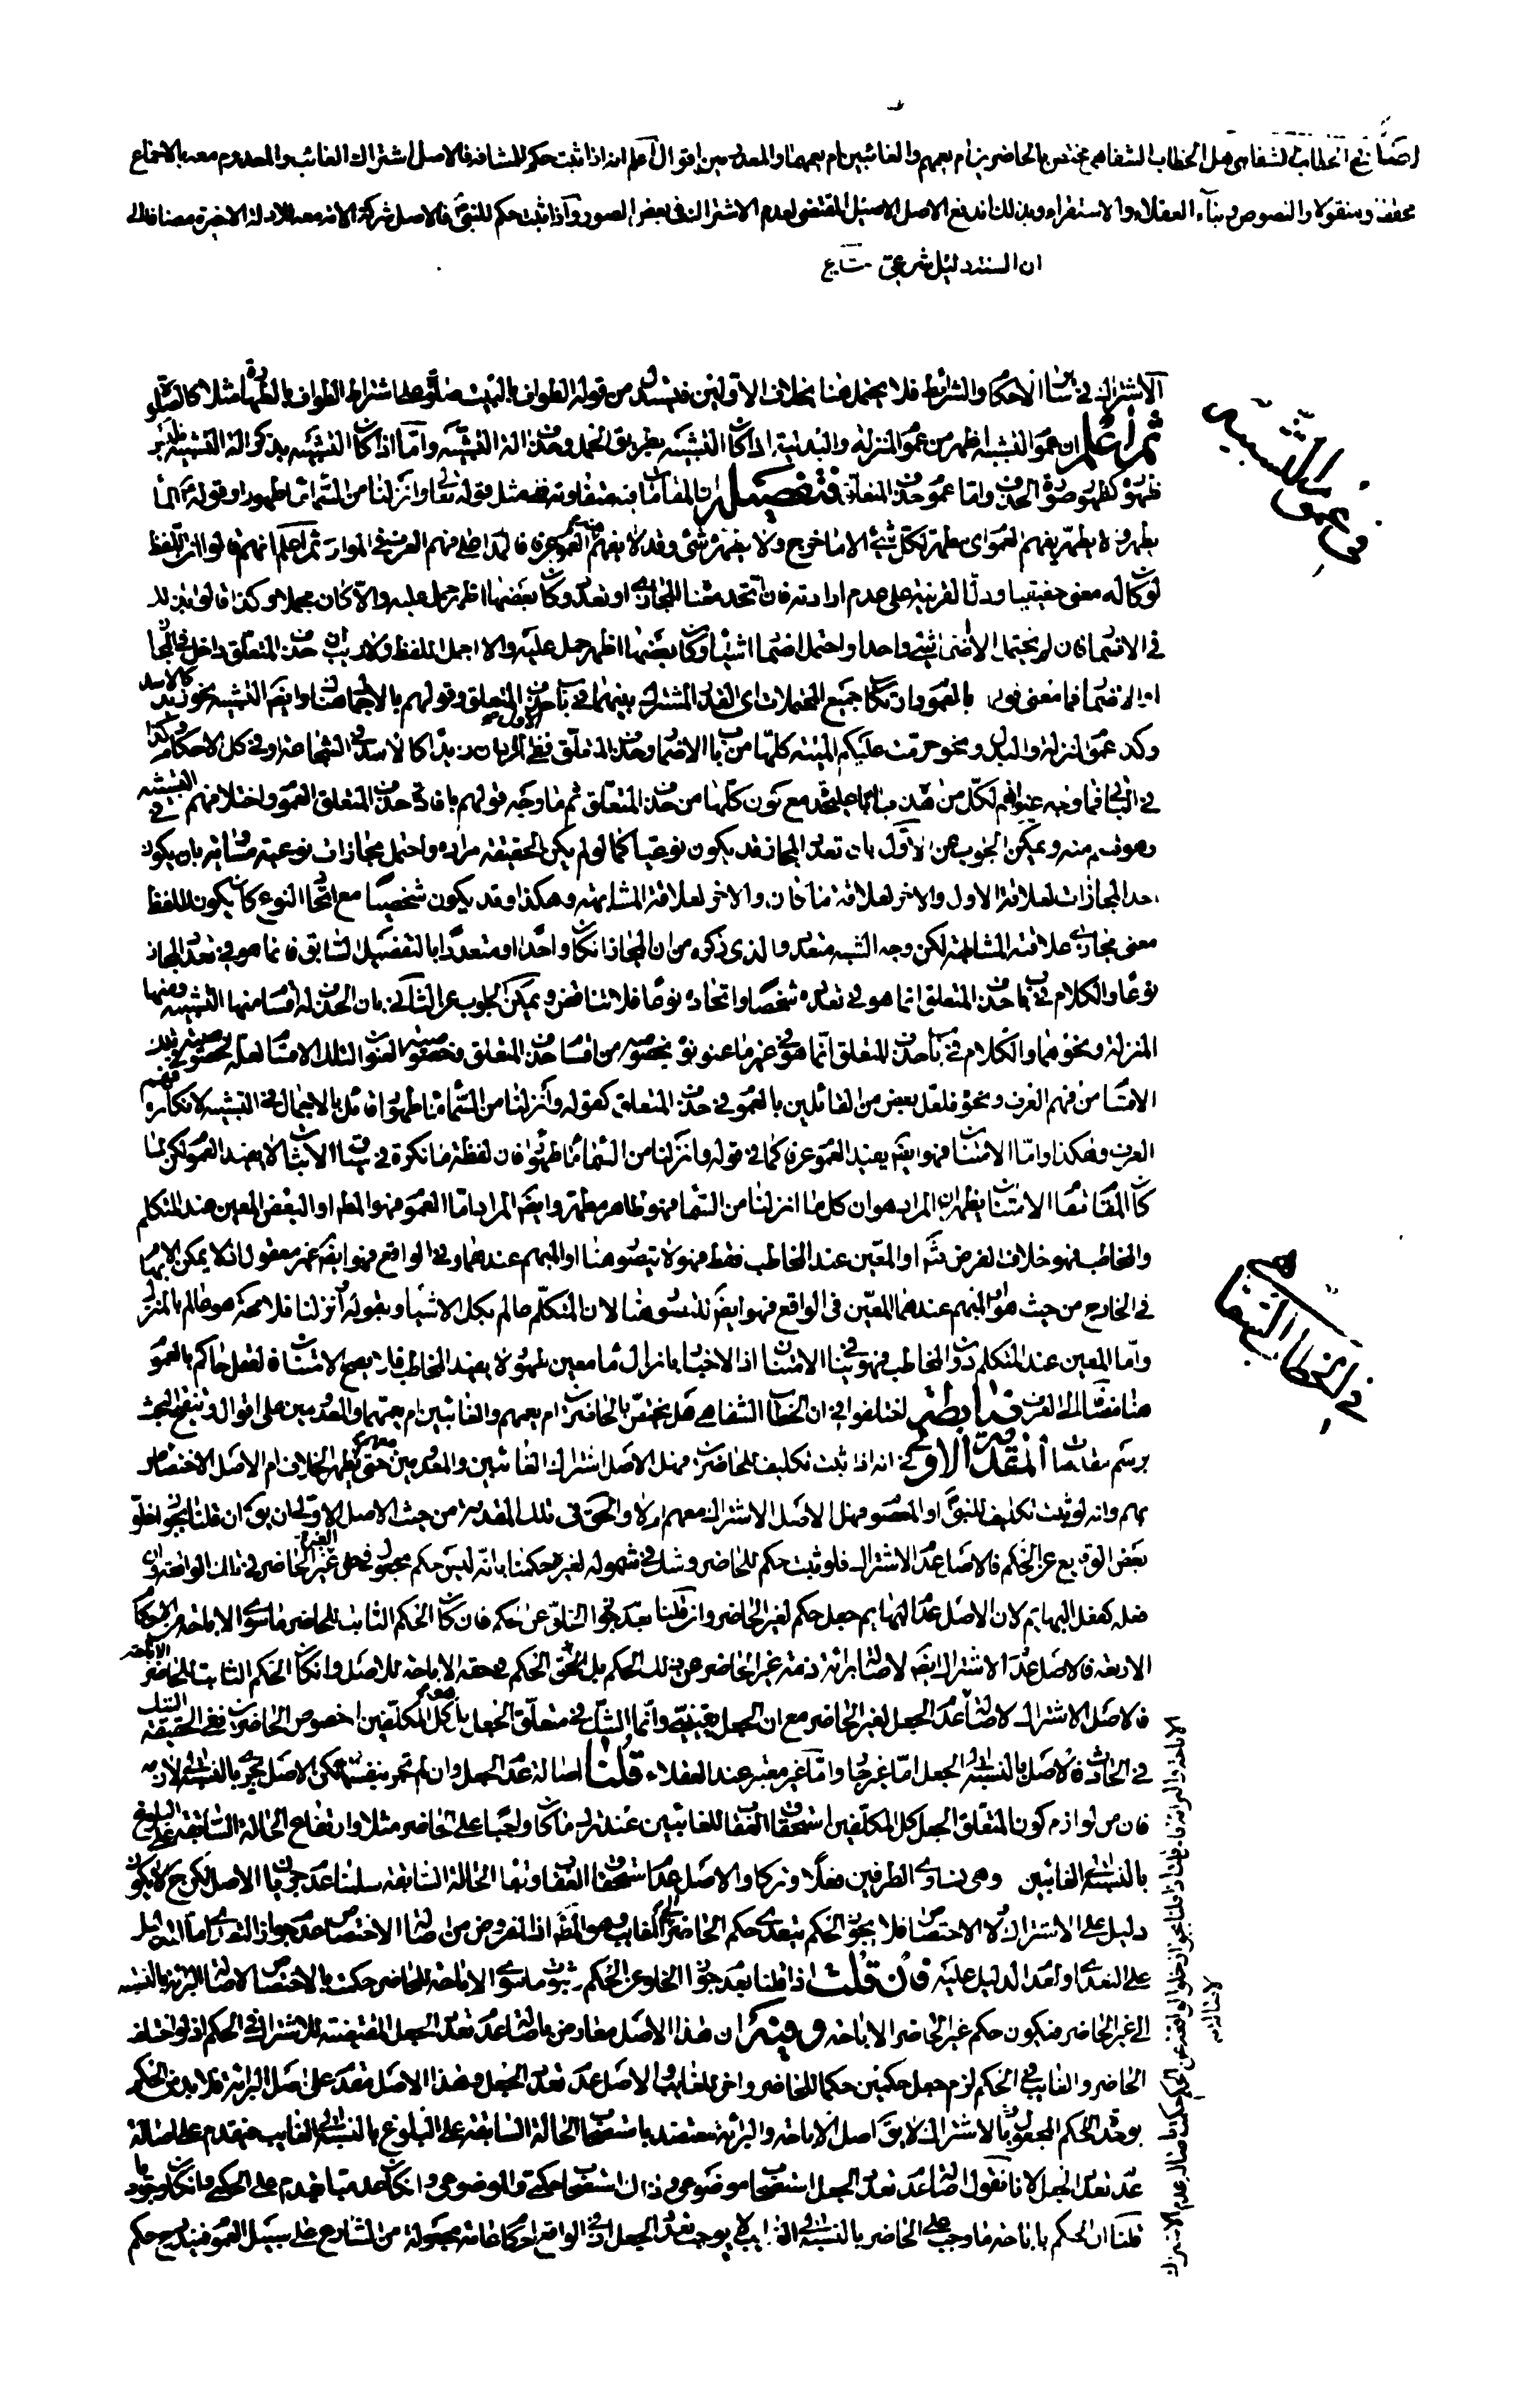 في الخطاب الشفاهي هل الخطاب الشفاهي مختص بالحاضرين ام يعمهم والغائبين ام يعمهما والمعدومين اقوال اعلم انه اذا ثبت حكم للمشافه فالاصل اشتراك الغائب والمعدوم معه بالاجماع
محققة ومنقولا والنصوص وبناء العقلاء والاستقراء وبذلك اندفع الاصل الاصيل المقتضى لعدم الاشتراك في بعض الصور واذا ثبت حكم للنبي فالاصل شركة الامة معه للادلة الاخيرة مضافا الى
ان السنة دليل شرعي
الاشتراك في الاحكام والشرائط فلا يجمل هنا بخلاف الاولين فيستدل من قوله الطواف بالبيت صلوة على اشتراط الطواف بالطهارة مثلا كالصلوة
ثم اعلم ان عموم التشبيه اظهر من عموم المنزلة والبدلية اذا كان التشبيه بطريق الحمل وحذف الة التشبيه واما اذا كان التشبيه بذكر الة التشبيه
ظهوره كظهور صورة الحذف واما عموم حذف المتعلق فتفصيله ان المقامات فيه متفاوتة فمثل قوله تعالى وانزلنا من السماء ماء طهورا وقوله الماء
يطهر ولا يطهر يفهم العموم اى مطهر لكل شئ الا ما خرج ولا يطهره شئ وقد لا يفهم العموم عرفا فالمدار على فهم العرف في الموارد ثم اعلم انهم قالوا ان اللفظ
لو كان له معنى حقيقيا ودل القرينة على عدم ارادته فان اتحد معناه المجازى او تعدد وكان بعضها اظهر حمل عليه والا كان مجملا وكذا قالوا
في الاضمار فان لم يحتمل الاضمار الا شئ واحدا واحتمل اضمار اشياء وكان بعضها اظهر حمل عليه والا اجمل اللفظ ولا ريب ان حذف المتعلق داخل في المجاز
او الاضمار فما معنى قولهم بالعموم وارتكاب جميع المحتملات اى القدر المشترك بينهما في باب حذف المتعلق وقولهم بالاجمال هنا وايضا التشبيه نحو زيد كالاسد
وكذا عموم المنزلة والبدل ونحو حرمت عليكم الميتة كلها من باب الاضمار وحذف المتعلق ففي الاول زيد كالاسد في الشجاعة او في كل الاحكام وكذا
في الثاني فما وجه عنوانهم لكل من هذه مبحثا عليحدة مع كون كلها من حذف المتعلق ثم ما وجه قولهم بافادة حذف المتعلق العموم واختلافهم في التشبيه
وهو قسم منه ويمكن الجواب عن الاول بان تعدد المجاز قد يكون نوعيا كما لو لم يكن الحقيقة مرادة واحتمل مجازات نوعية مشابهة بان يكون
احد المجازات لعلاقة الاول والاخر لعلاقة ما كان والاخر لعلاقة المشابهة وهكذا وقد يكون شخصيا مع اتحاد النوع كان يكون للفظ
معنى مجازى علاقته المشابهة لكن وجه الشبه متعدد والذى ذكره من ان المجاز ان كان واحدا او متعددا بالتفصيل السابق فانما هو في تعدد المجاز
نوعا والكلام في باب حذف المتعلق انما هو في تعدده شخصا واتحاده نوعا فلا تناقض ويمكن الجواب عن الثاني بان الحذف له اقسام منها التشبيه ومنها
المنزلة ونحوهما والكلام في باب حذف المتعلق انما هو في غير ما عنونوه بخصوصه من اقسام حذف المتعلق وخصوصية العنوان لتلك الاقسام لعله لخصوصية في تلك
الاقسام من فهم العرف ونحوه فلعل بعض من القائلين بالعموم في حذف المتعلق كقوله وانزلنا من السماء ماء طهورا قائل بالاجمال في التشبيه لانكاره فهم
العرف وهكذا واما الامتنان فهو ايضا يفيد العموم عرفا كما في قوله وانزلنا من السماء ماء طهورا فان لفظة ماء نكرة في سياق الاثبات لا يفيد العموم لكن لما
كان المقام مقام الامتنان يظهر ان المراد هو ان كل ما انزلنا من السماء فهو طاهر مطهر وايضا المراد اما العموم فهو المط او البعض المعين عند المتكلم
والمخاطب فهو خلاف الفرض ثم او المعين عند المخاطب فقط فهو لا يتصور هنا او المبهم عندهما وفي الواقع فهو ايضا غير معقول اذ لا يمكن الابهام
في الخارج من حيث هو او المبهم عندهما المعين في الواقع فهو ايضا لا يتصور هنا لان المتكلم عالم بكل الاشياء وبقوله انزلنا فلا محة هو عالم بالمنزل
واما المعين عند المتكلم دون المخاطب فهو ينافي الامتنان اذ الاخبار بانزال ماء معين طهور لا يفيد المخاطب فلا يصح الامتنان فالعقل حاكم بالعموم
هنا مضافا الى العرف ضابطة اختلفوا في ان الخطاب الشفاهي هل يختص بالحاضرين ام يعمهم والغائبين ام يعمهما والمعدومين على اقوال وتنقيح البحث
برسم مقامات المقدمة الاولى في انه اذا ثبت تكليف للحاضرين فهل الاصل اشتراك الغائبين والمعدومين معهم حتى يظهر الخلاف ام الاصل الاختصاص
بهم وانه لو ثبت تكليف للنبي او المعصوم فهل الاصل الاشتراك معهم ام لا والحق في تلك المقدمة من حيث الاصل الاولى ان يق ان قلنا بجواز خلو
بعض الوقايع عن الحكم فالاصل عدم الاشتراك فلو ثبت حكم للحاضر وشك في شموله لغيره حكمنا بانه ليس حكم مجعول في حق غير الحاضر في تلك الواقعة وان
فعله كفعل البهايم لان الاصل عدم جعل حكم لغير الحاضر وان قلنا بعدم جواز الخلو عن حكم فان كان الحكم الثابت للحاضر ما سوى الاباحة من الاحكام
الاربعة فالاصل عدم الاشتراك ايضا لاصالة برائة ذمة غير الحاضر عن ذلك الحكم بل الحكم في حقه الاباحة للاصل وان كان الحكم الثابت للحاضر الاباحة
فالاصل الاشتراك لاصالة عدم الجعل لغير الحاضر مع ان الجعل يقيني وانما الشك في متعلق الجعل بان كل المكلفين او خصوص الحاضرين ففي الحقيقة الشك
في الحادث فالاصل بالنسبة الى الجعل اما غير جار واما غير معتبر عند العقلاء قلنا اصالة عدم الجعل وان لم تجر بنفسها لكن الاصل يجرى بالنسبة الى لازمه
فان من لوازم كون المتعلق الجعل كل المكلفين استحقاق العقاب للغائبين عند ترك ما كان واجبا على الحاضر مثلا وارتفاع الحالة السابقة على البلوغ
بالنسبة الى الغائبين وهي تساوى الطرفين فعلا وتركا والاصل عدم استحقاق العقاب وبقاء الحالة السابقة سلمنا عدم جريان الاصل لكن ح لا يكون
دليل على الاشتراك ولا الاختصاص فلا يجوز الحكم بتعدى حكم الحاضر الى الغايب وهو المط اذ المفروض من اصالة الاختصاص عدم جواز التعدى اما لدليل
على العدم او لعدم الدليل عليه فان قلت اذا قلنا بعدم جواز الخلو عن الحكم وثبوت ما سوى الاباحة للحاضر حكمت بالاختصاص لاصالة البرائة بالنسبة
الى غير الحاضر فيكون حكم غير الحاضر الاباحة وفيه ان هذا الاصل معارض باصالة عدم تعدد الجعل المقتضية للاشتراك في الحكم اذ لو اختلف
الحاضر والغايب في الحكم لزم جعل حكمين حكما للحاضر واخر للغايب والاصل عدم تعدد الجعل وهذا الاصل مقدم على اصل البرائة فلا بد من الحكم
بوحدة الحكم المجعول بالاشتراك لا يق اصل الاباحة والبرائة معتضد باستصحاب الحالة السابقة على البلوغ بالنسبة الى الغايب فيقدم على اصالة
عدم تعدد الجعل لانا نقول اصالة عدم تعدد الجعل استصحاب موضوعي وذاك استصحاب حكمي والموضوعي وان كان عدميا مقدم على الحكمي وان كان وجوديا
قلنا ان الحكم باباحة ما وجب على الحاضر بالنسبة الى الغايب لا يوجب تعدد الجعل اذ في الواقع احكام عامة مجعولة من الشارع على سبيل العموم فيندرج حكم
في عموم التشبيه
في الخطاب الشفاهي